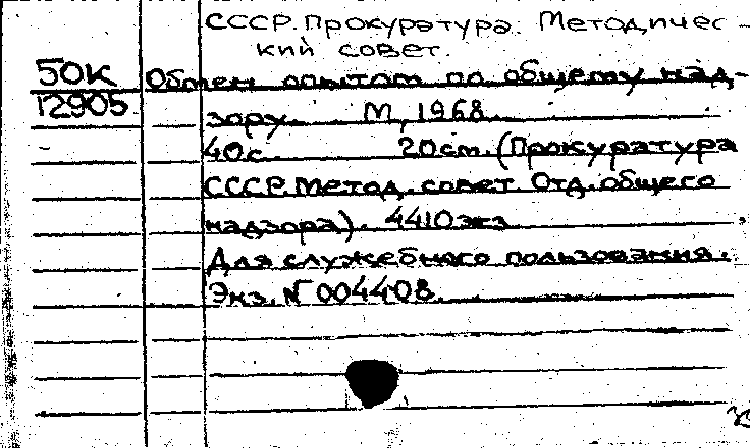 СССР. Прокуратура. Методичес-
кий совет.
50К Обмен опытом по общему над-
12905 зору. М, 1968.
40с. 20см. (Прокуратура
СССР. Метод. совет. Отд. общего
надзора). 4410экз
Для служебного пользования.
Экз. № 004408.